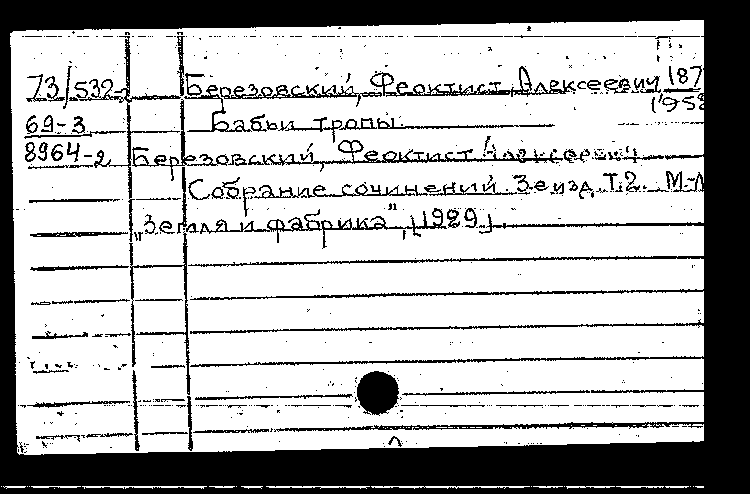 73/532-2 Березовский, Феоктист Алексеевич 187
1952
69-3 Бабьи тропы.
8964-2 Березовский, Феоктист Алексеевич
Собрание сочинений 3е изд. Т.2. М-Л
„Земля и фабрика", [1929].